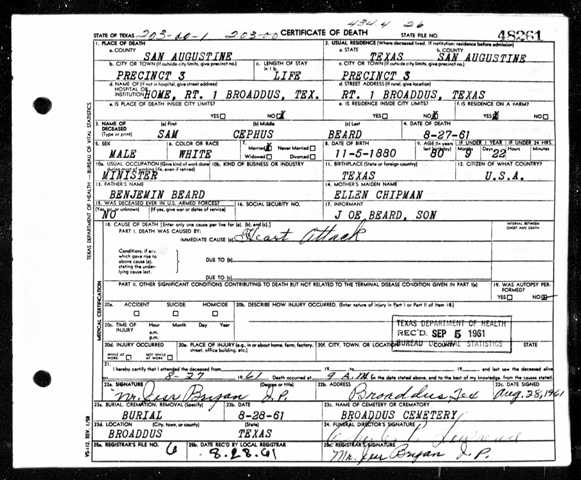 434 4 26
STATE OF TEXAS 203-00-1 203-00 CERTIFICATE OF DEATH STATE FILE NO. 48261
1. PLACE OF DEATH 2. USUAL RESIDENCE (Where deceased lived. If institution: residence before admission)
a. COUNTY SAN AUGUSTINE a. STATE TEXAS b. COUNTY SAN AUGUSTINE
b. CITY OR TOWN (If outside city limits, give precinct no.) c. LENGTH OF STAY c. CITY OR TOWN (If outside city limits, give precinct no.)
PRECINCT 3 LIFE PRECINCT 3
d. NAME OF (If not in hospital, give street address) d. STREET ADDRESS (If rural, give location)
HOSPITAL OR
INSTITUTION HOME, RT. 1 BROADDUS, TEX. RT. 1 BROADDUS, TEXAS
e. IS PLACE OF DEATH INSIDE CITY LIMITS? e. IS RESIDENCE INSIDE CITY LIMITS? f. IS RESIDENCE ON A FARM?
YES NO YES NO YES NO
3. NAME OF DECEASED (Type or print) (a) First (b) Middle (c) Last 4. DATE OF DEATH
SAM CEPHUS BEARD 8-27-61
5. SEX 6. COLOR OR RACE 7. Married Never Married Widowed Divorced 8. DATE OF BIRTH 9. AGE IF UNDER 1 YEAR IF UNDER 24 HRS.
MALE WHITE 11-5-1880 80 9 22
10a. USUAL OCCUPATION (Give kind of work done) 10b. KIND OF BUSINESS OR INDUSTRY 11. BIRTHPLACE (State or foreign country) 12. CITIZEN OF WHAT COUNTRY?
MINISTER TEXAS U.S.A.
13. FATHER'S NAME 14. MOTHER'S MAIDEN NAME
BENJEMIN BEARD ELLEN CHIPMAN
15. WAS DECEASED EVER IN U.S. ARMED FORCES? 16. SOCIAL SECURITY NO. 17. INFORMANT
(Yes, no, or unknown) (If yes, give war or dates of service)
NO J OE BEARD, SON
18. CAUSE OF DEATH (Enter only one cause per line for (a), (b), and (c).) INTERVAL BETWEEN ONSET AND DEATH
PART I. DEATH WAS CAUSED BY:
IMMEDIATE CAUSE (a) Heart Attack
Conditions, if any, which gave rise to above cause (a), stating the underlying cause last.
DUE TO (b)
DUE TO (c)
PART II. OTHER SIGNIFICANT CONDITIONS CONTRIBUTING TO DEATH BUT NOT RELATED TO THE TERMINAL DISEASE CONDITION GIVEN IN PART I(a) 19. WAS AUTOPSY PERFORMED?
YES NO
20a. ACCIDENT SUICIDE HOMICIDE 20b. DESCRIBE HOW INJURY OCCURRED. (Enter nature of injury in Part I or Part II of item 18.)
20c. TIME OF INJURY Hour Month Day Year
a.m.
p.m.
TEXAS DEPARTMENT OF HEALTH
REC'D SEP 5 1961
BUREAU OF VITAL STATISTICS
20d. INJURY OCCURRED 20e. PLACE OF INJURY (e.g., in or about home, farm, factory, street, office building, etc.) 20f. CITY, TOWN, OR LOCATION COUNTY STATE
WHILE AT WORK NOT WHILE AT WORK
21. I hereby certify that I attended the deceased from 19 to 19 and last saw the deceased alive
8-27 1961 Death occurred at 9 A.M. to the date stated above, and to the best of my knowledge, from the causes stated.
22a. SIGNATURE (Degree or title) 22b. ADDRESS 22c. DATE SIGNED
Bryan J.P. Broaddus, Tex Aug. 28, 1961
23a. BURIAL, CREMATION, REMOVAL (Specify) 23b. DATE 23c. NAME OF CEMETERY OR CREMATORY
BURIAL 8-28-61 BROADDUS CEMETERY
23d. LOCATION (City, town, or county) (State) 24. FUNERAL DIRECTOR'S SIGNATURE
BROADDUS TEXAS
25a. REGISTRAR'S FILE NO. 6 25b. DATE REC'D BY LOCAL REGISTRAR 8.28.61 25c. REGISTRAR'S SIGNATURE
Bryan J.P.
TEXAS DEPARTMENT OF HEALTH—BUREAU OF VITAL STATISTICS
MEDICAL CERTIFICATION